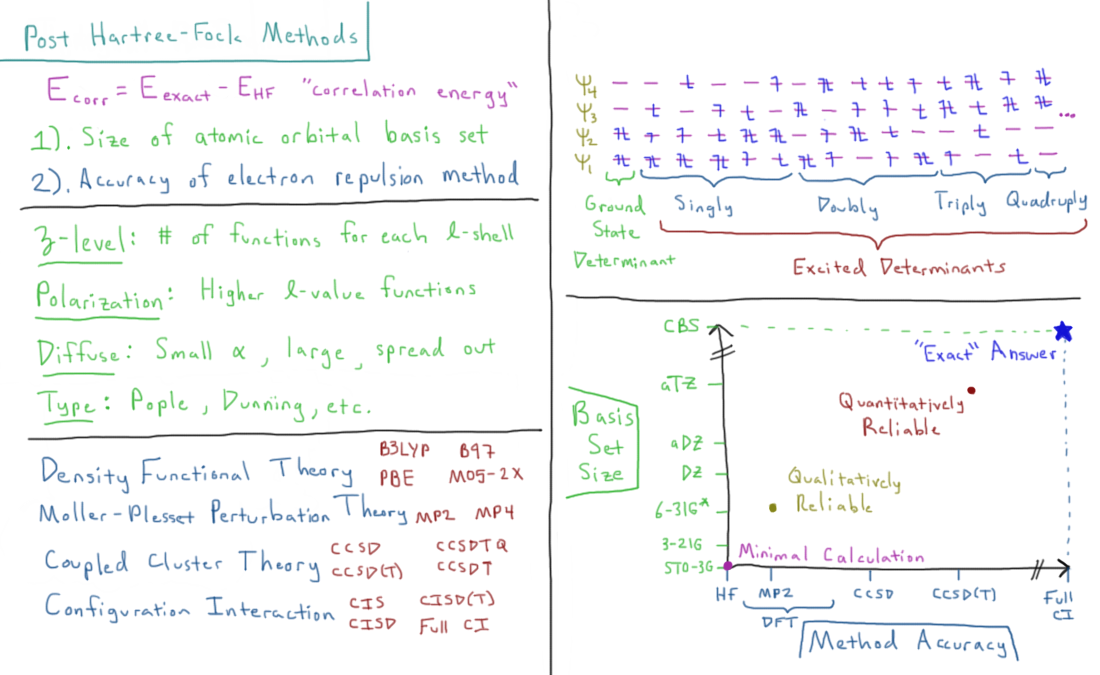 Post Hartree-Fock Methods
E corr = E exact - E HF "correlation energy"
1). Size of atomic orbital basis set
2). Accuracy of electron repulsion method
ʒ-level: # of functions for each l-shell
Polarization: Higher l-value functions
Diffuse: Small α, large, spread out
Type: Pople, Dunning, etc.
Density Functional Theory
B3LYP B97
PBE M05-2X
Moller-Plesset Perturbation Theory MP2 MP4
Coupled Cluster Theory
CCSD CCSDTQ
CCSD(T) CCSDT
Configuration Interaction
CIS CISD(T)
CISD Full CI
Ψ4
Ψ3 ...
Ψ2
Ψ1
Ground State Determinant
Singly Doubly Triply Quadruply
Excited Determinants
CBS
"Exact" Answer
aTZ
Quantitatively
Reliable
Basis
Set
Size
aDZ
DZ
Qualitatively
Reliable
6-31G*
3-21G
Minimal Calculation
STO-3G
HF MP2 CCSD CCSD(T) Full CI
DFT
Method Accuracy